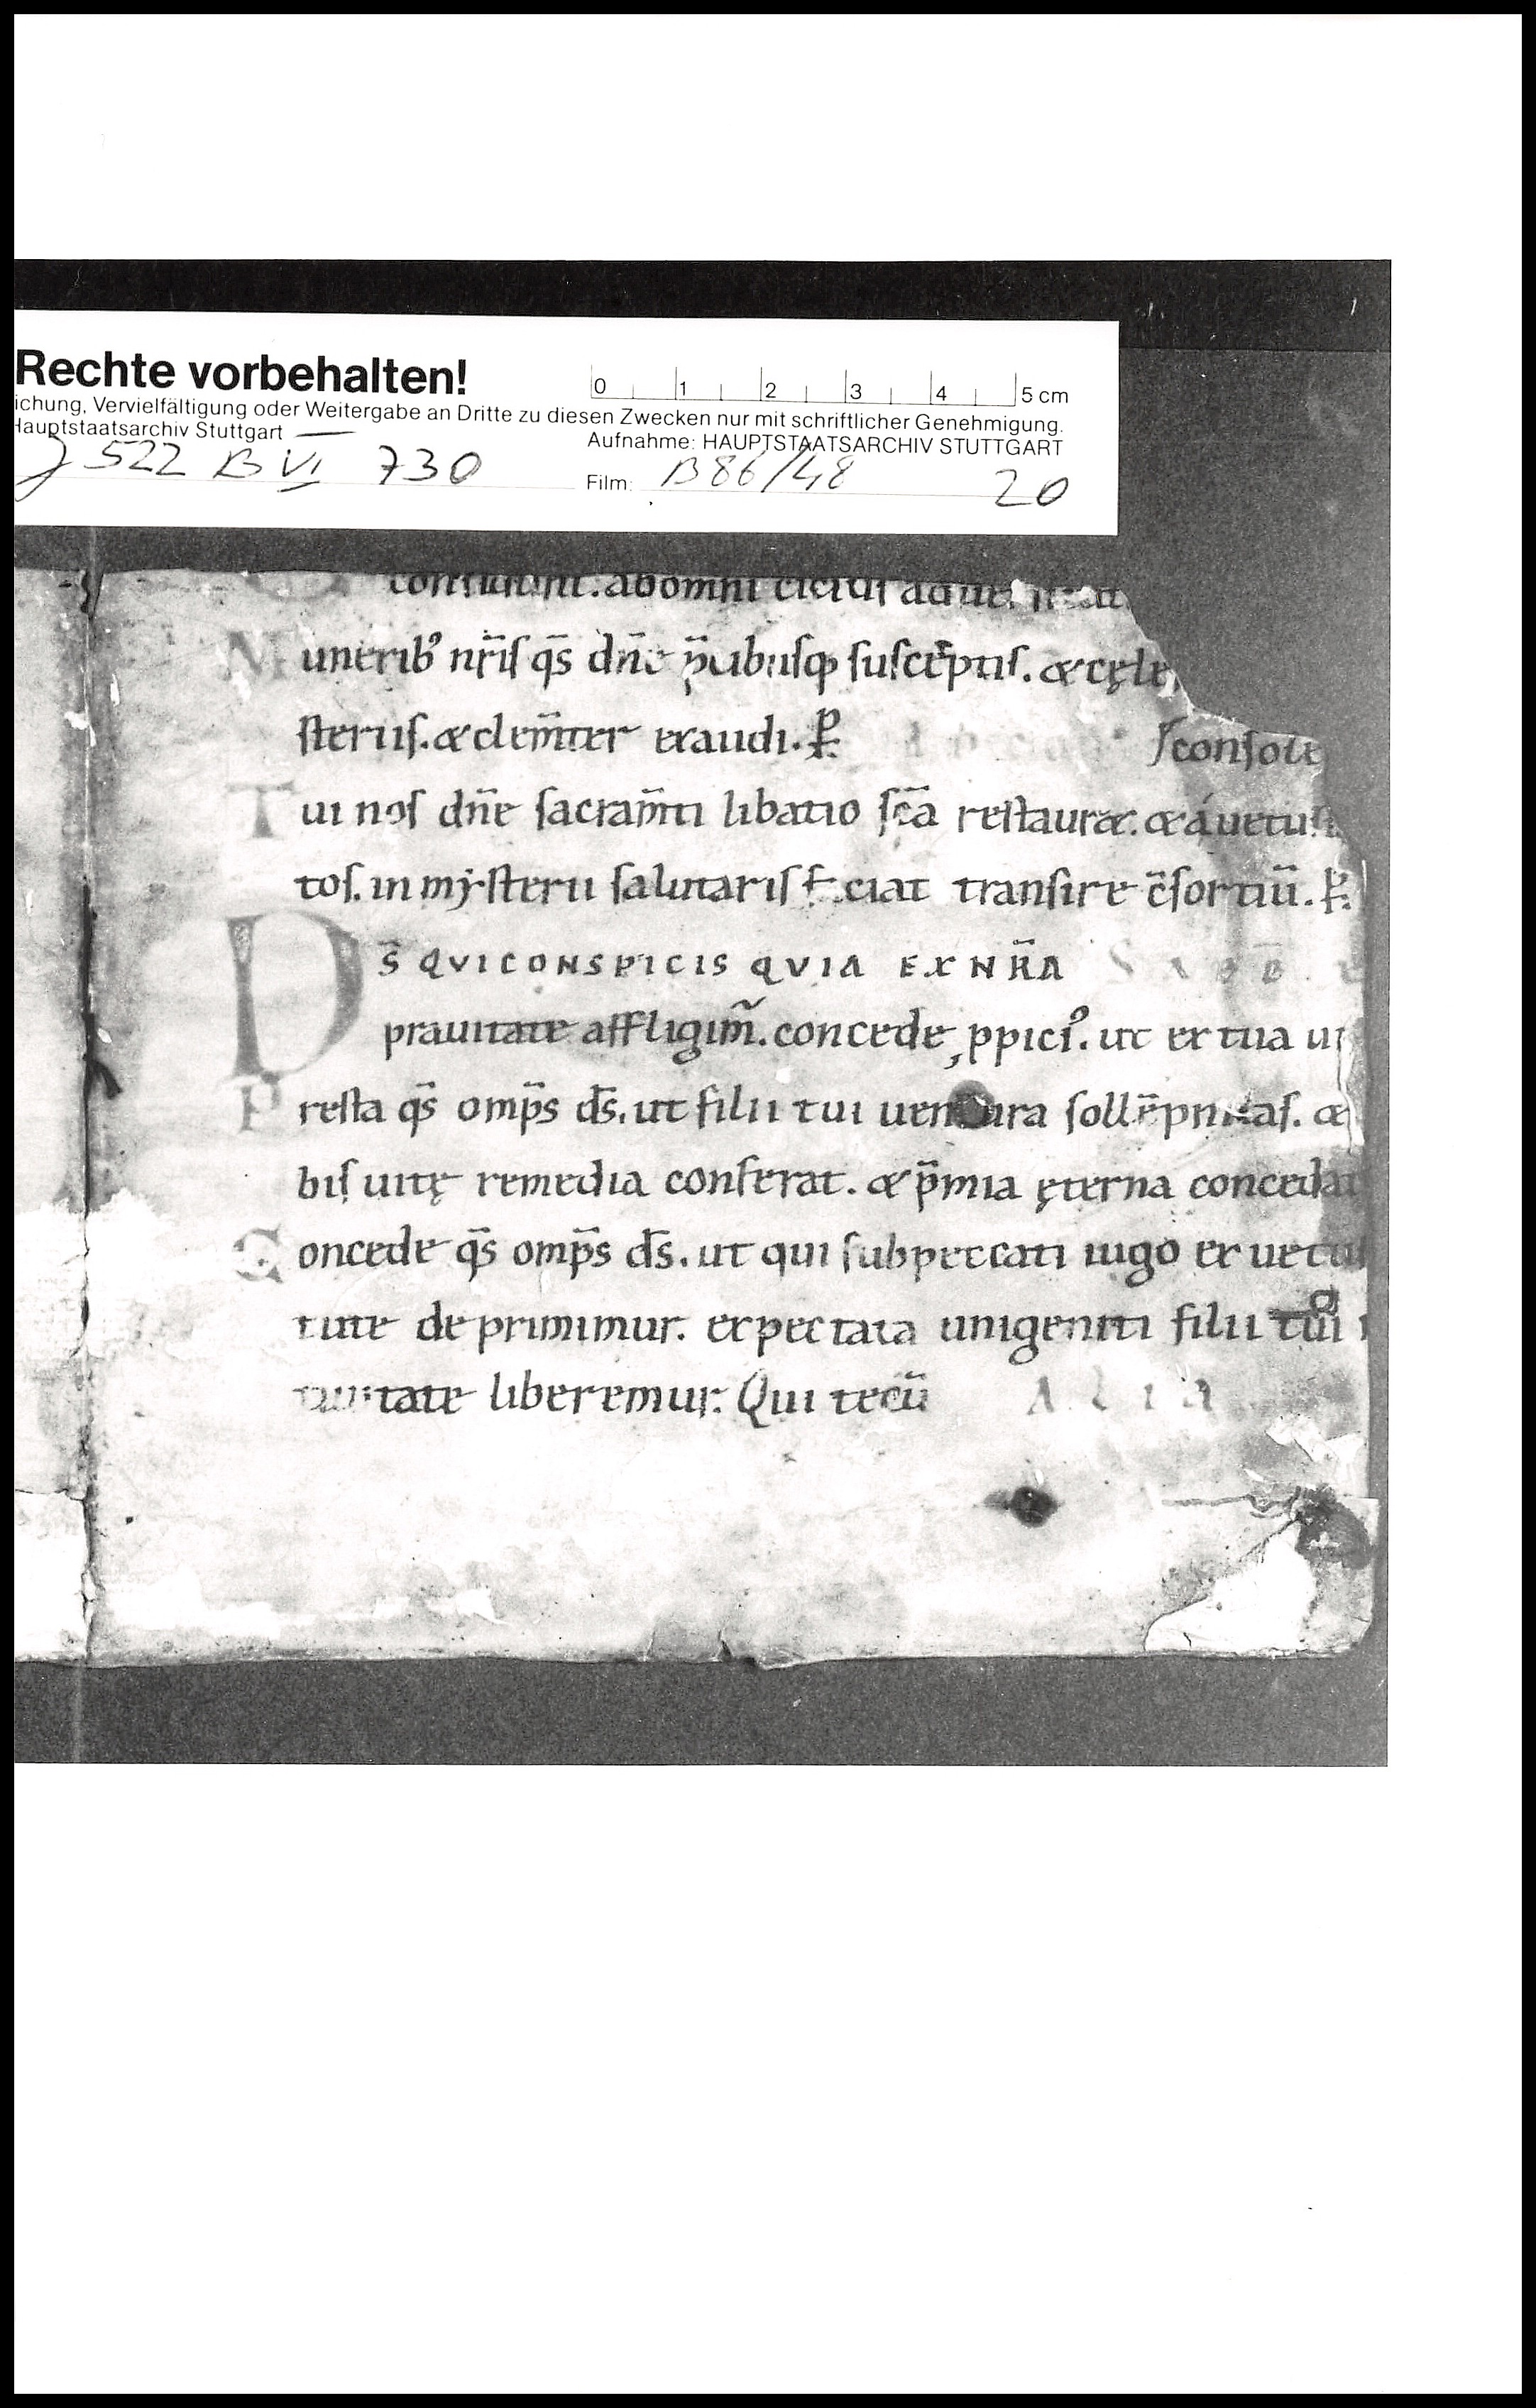 Rechte vorbehalten!
0 1 2 3 4 5 cm
ichung, Vervielfältigung oder Weitergabe an Dritte zu diesen Zwecken nur mit schriftlicher Genehmigung.
Hauptstaatsarchiv Stuttgart
Aufnahme: HAUPTSTAATSARCHIV STUTTGART
J 522 B VI 730
Film: B 86/48 20
confidunt. ab omni
Munerib᷒ nr̄is qs̄ dn̄e p̄cibusq; susceptis. & cęle
steriis. & clem̄ter exaudi. P̱
ſconsole
Tui nos dn̄e sacram̄ti libatio sc̄a restaur&. & á uetus
tos. in mẏsterii salutaris faciat transire c̄sortiū. P̱
DS̄ QVI CONSPICIS QVIA EX NR̄A SABB
prauitate affligim̄. concede ꝓpici᷒. ut ex tua ui
Presta qs̄ omp̄s ds̄. ut filii tui uentura sollēpnitas. &
bis uitę remedia conferat. & p̄mia ęterna concedat
Concede qs̄ omp̄s ds̄. ut qui sub peccati iugo ex uetus
tute deprimimur. expectata unigeniti filii tui
tiuitate liberemur. Qui tecū ALIA